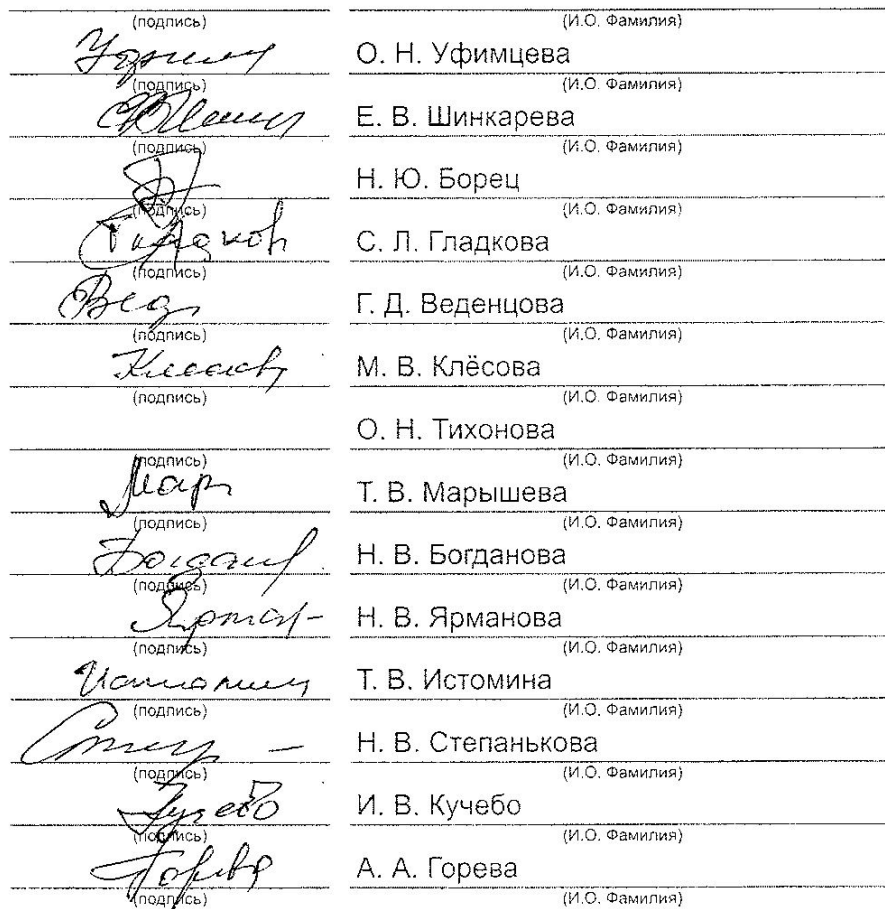 (подпись) (И.О. Фамилия)
О. Н. Уфимцева
(подпись) (И.О. Фамилия)
Е. В. Шинкарева
(подпись) (И.О. Фамилия)
Н. Ю. Борец
(подпись) (И.О. Фамилия)
Гладков С. Л. Гладкова
(подпись) (И.О. Фамилия)
Вед Г. Д. Веденцова
(подпись) (И.О. Фамилия)
М. В. Клёсова
(подпись) (И.О. Фамилия)
О. Н. Тихонова
(подпись) (И.О. Фамилия)
Мар Т. В. Марышева
(подпись) (И.О. Фамилия)
Н. В. Богданова
(подпись) (И.О. Фамилия)
Н. В. Ярманова
(подпись) (И.О. Фамилия)
Т. В. Истомина
(подпись) (И.О. Фамилия)
Н. В. Степанькова
(подпись) (И.О. Фамилия)
Кучебо И. В. Кучебо
(подпись) (И.О. Фамилия)
Горева А. А. Горева
(подпись) (И.О. Фамилия)